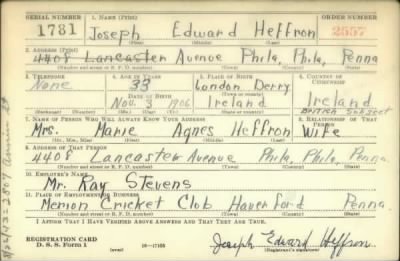 SERIAL NUMBER 1. NAME (Print) ORDER NUMBER
1781 Joseph Edward Heffron 2557
(First) (Middle) (Last)
2. ADDRESS (Print)
4408 Lancaster Avenue Phila, Phila, Penna
(Number and street or R. F. D. number) (Town) (County) (State)
3. TELEPHONE 4. AGE IN YEARS 5. PLACE OF BIRTH 6. COUNTRY OF CITIZENSHIP
None 33 London Derry Ireland
DATE OF BIRTH (Town or county) British Subject
Nov. 3 1906 Ireland
(Exchange) (Number) (Mo.) (Day) (Yr.) (State or country)
7. NAME OF PERSON WHO WILL ALWAYS KNOW YOUR ADDRESS 8. RELATIONSHIP OF THAT PERSON
Mrs. Marie Agnes Heffron Wife
(Mr., Mrs., Miss) (First) (Middle) (Last)
9. ADDRESS OF THAT PERSON
4408 Lancaster Avenue Phila, Phila, Penna.
(Number and street or R. F. D. number) (Town) (County) (State)
10. EMPLOYER'S NAME
Mr. Ray Stevens
11. PLACE OF EMPLOYMENT OR BUSINESS
Merrion Cricket Club Haverford Penna.
(Number and street or R. F. D. number) (Town) (County) (State)
I AFFIRM THAT I HAVE VERIFIED ABOVE ANSWERS AND THAT THEY ARE TRUE.
REGISTRATION CARD
D. S. S. Form 1 (over) Joseph Edward Heffron
(Registrant's signature)